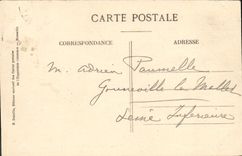 CARTE POSTALE
CORRESPONDANCE
ADRESSE
M. Adrien Paumelle
Gonneville la Mallet
Seine Inférieure